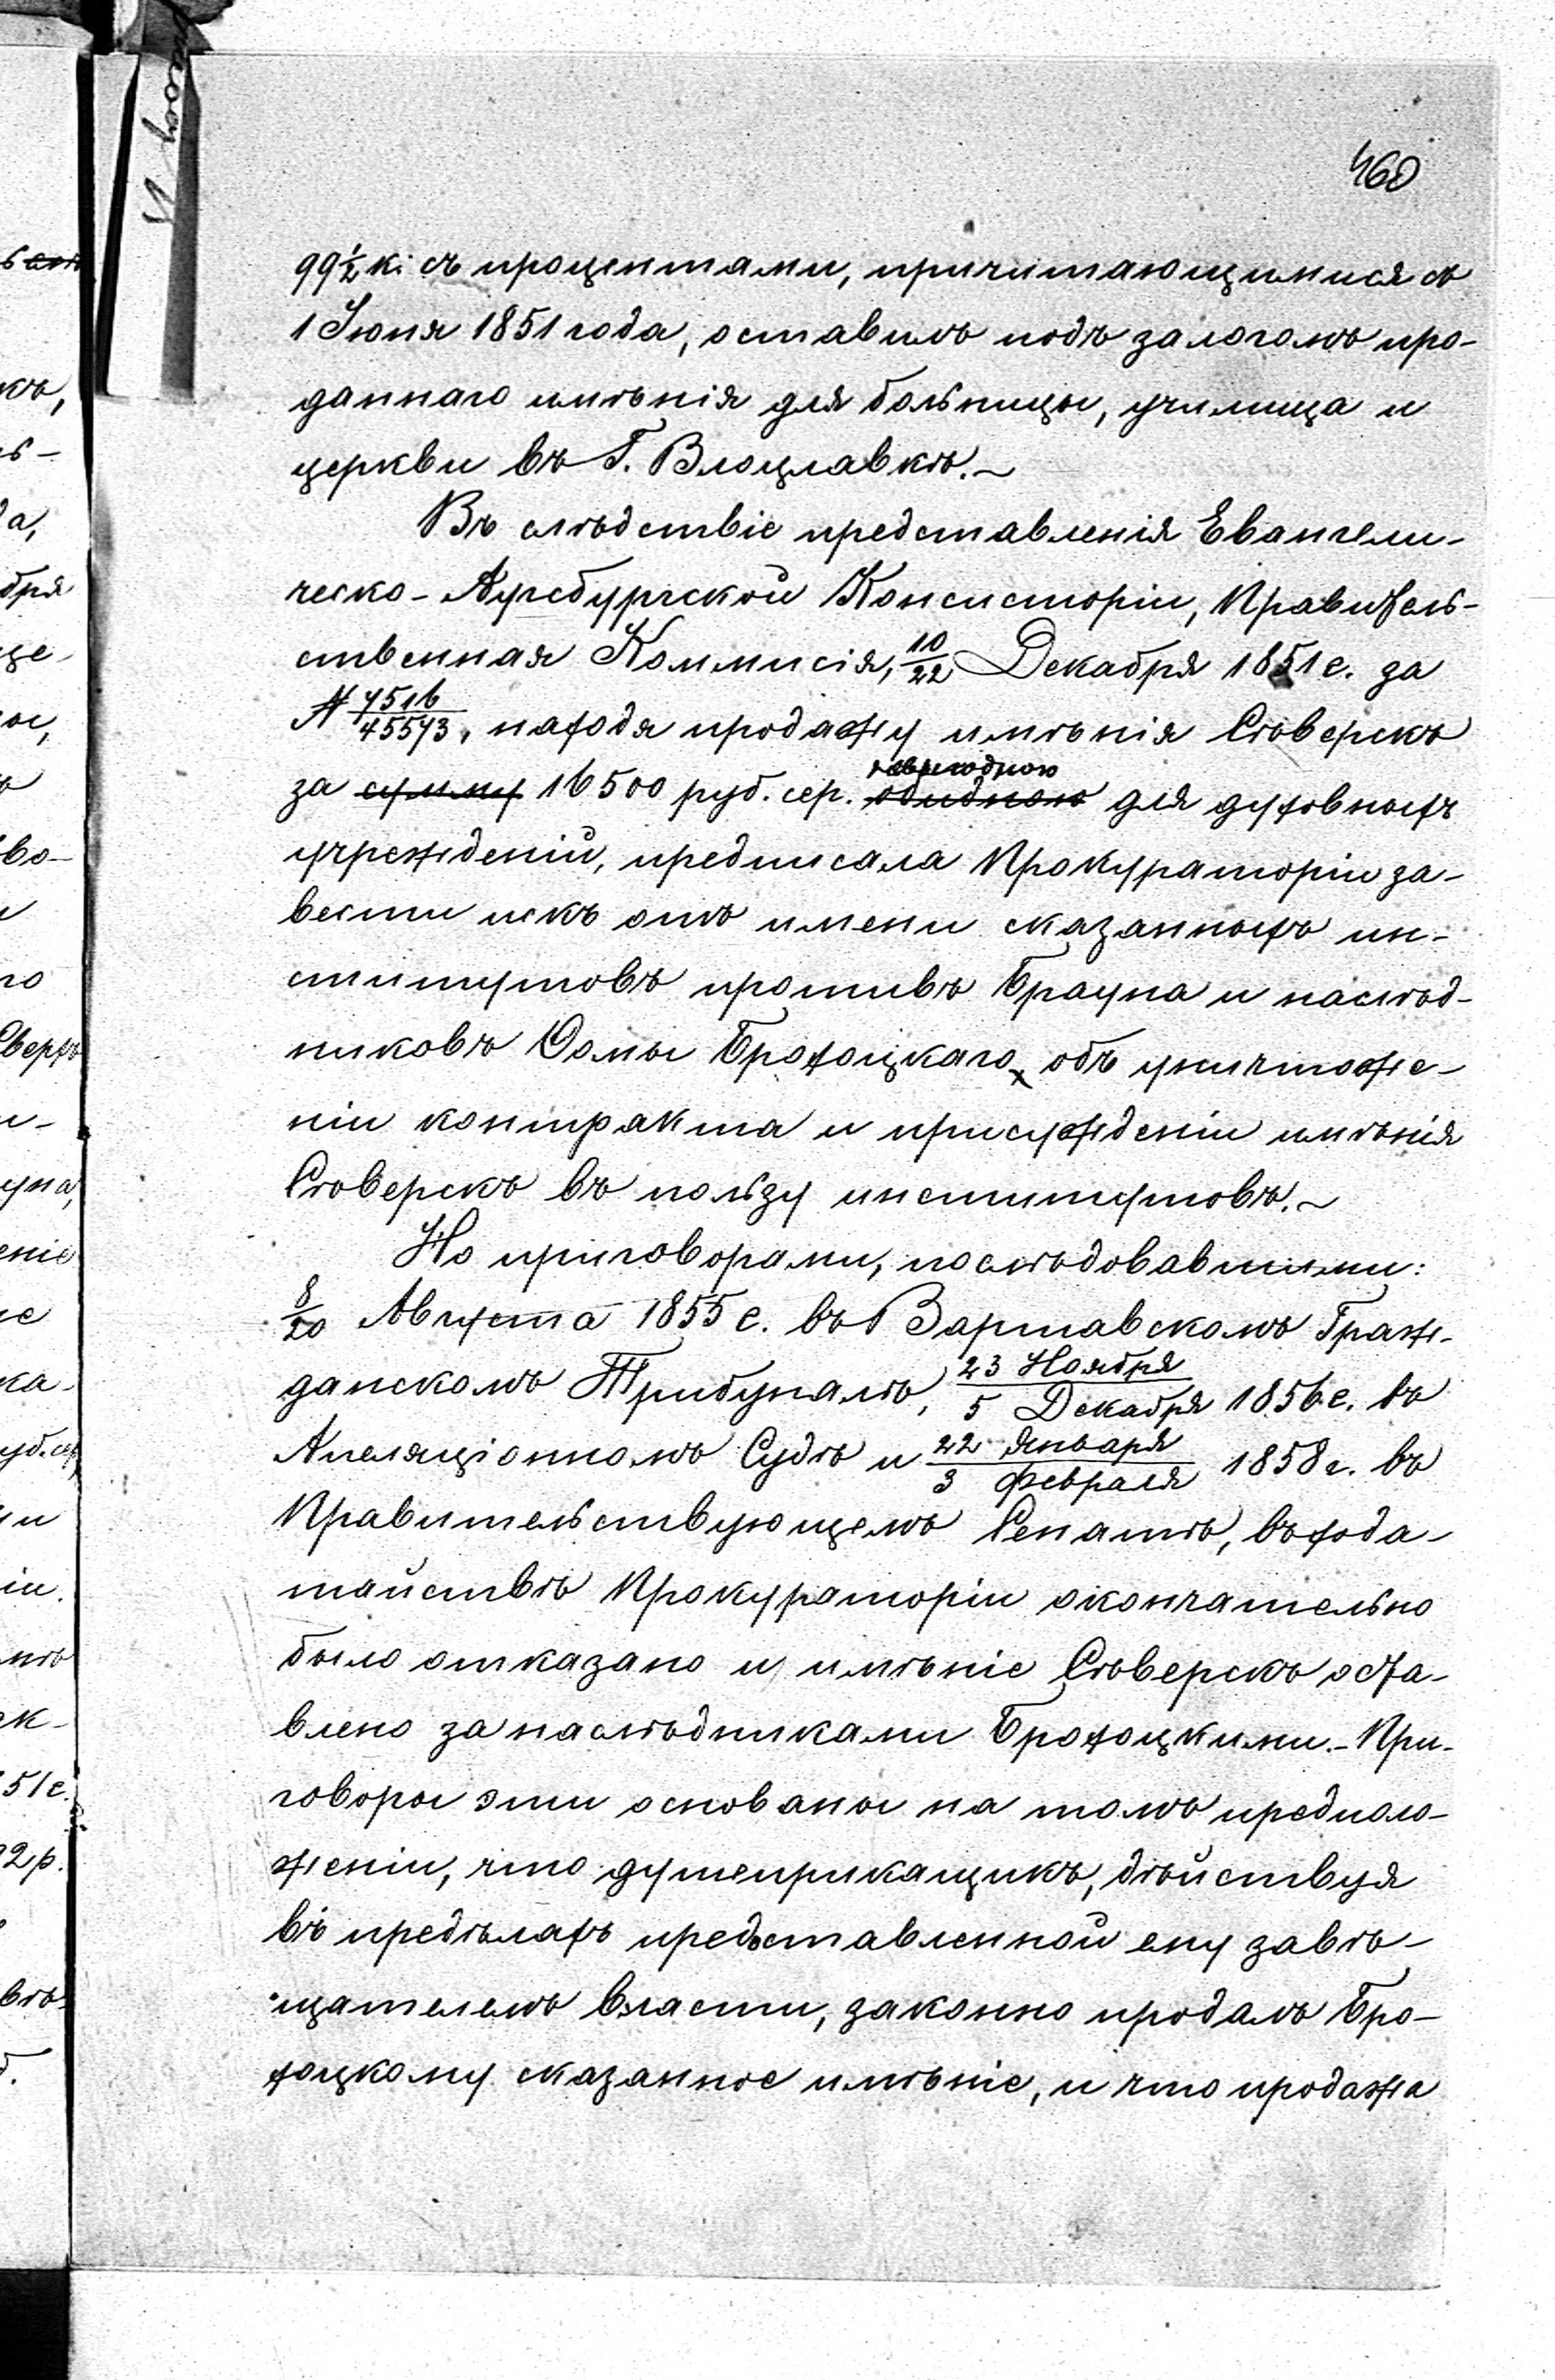 460
99½ к: съ процентами, причитающимися съ
1 Іюня 1851 года, оставилъ подъ залогомъ про-
даннаго имѣнія для больницы, училища и
церкви въ Г. Влоцлавкѣ.~
Въ слѣдствіе представленія Евангели-
ческо-Аугсбургской Консисторіи, Правитель-
ственная Коммисія, 10/22 Декабря 1851 г. за
№ 7516/45573, находя продажу имѣнія Сѣверскъ
за ~~сумму~~ 16500 руб. сер. ~~обидною~~ невыгодною для духовныхъ
учрежденій, предписала Прокураторіи за-
вести искъ отъ имени сказанныхъ ин-
ститутовъ противъ Брауна и наслѣд-
никовъ Ѳомы Брохоцкаго, объ уничтоже-
ніи контракта и присужденіи имѣнія
Сѣверскъ въ пользу институтовъ.~
Но приговорами, послѣдовавшими:
8/20 Августа 1855 г. въ Варшавскомъ Граж-
данскомъ Трибуналѣ, 23 Ноября/5 Декабря 1856 г. въ
Апеляціонномъ Судѣ и 22 Января/3 Февраля 1858 г. въ
Правительствующемъ Сенатѣ, въ хода-
тайствѣ Прокураторіи окончательно
было отказано и имѣніе Сѣверскъ оста-
влено за наслѣдниками Брохоцкими.- При-
говоры эти основаны на томъ предполо-
женіи, что душеприкащикъ, дѣйствуя
въ предѣлахъ предъставленной ему завѣ-
щателемъ власти, законно продалъ Бро-
хоцкому сказанное имѣніе, и что продажа